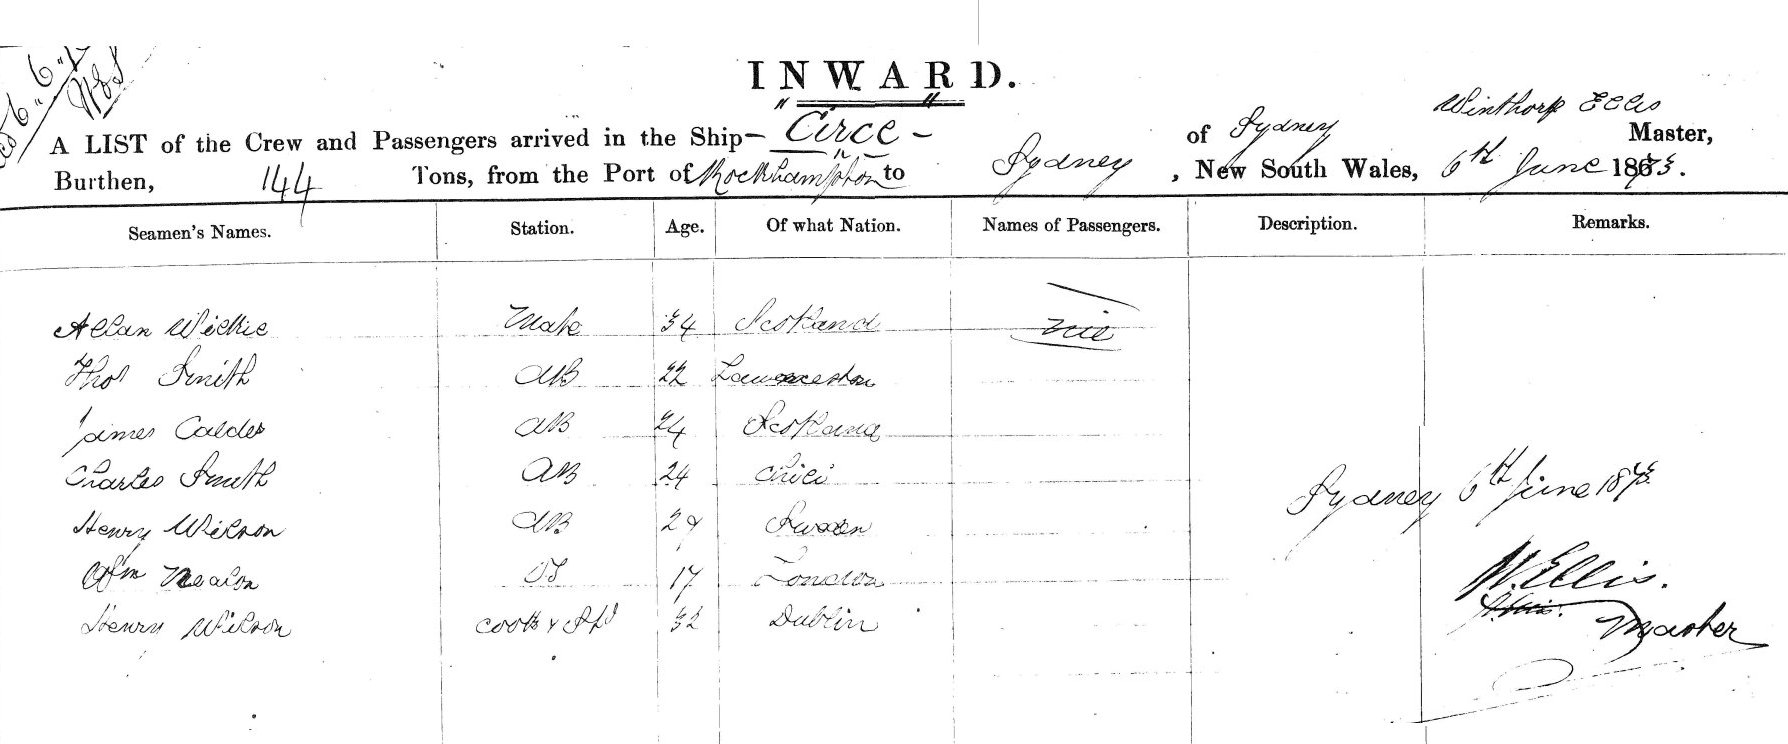 6.6.73
WES
INWARD.
Winthorp Ellis
A LIST of the Crew and Passengers arrived in the Ship – "Circe" – of Sydney Master,
Burthen, 144 Tons, from the Port of Rockhampton to Sydney, New South Wales, 6th June 1873.
Seamen's Names. Station. Age. Of what Nation. Names of Passengers. Description. Remarks.
Allan Wilkie Mate 34 Scotland nil
Thos Smith AB 22 Launceston
James Calder AB 24 Scotland
Charles Smith AB 24 Chili
Henry Wilson AB 29 Sweden
Sydney 6th June 1873
Wm OS 17 London
W. Ellis.
Henry Wilson Cook & Std 32 Dublin
Master